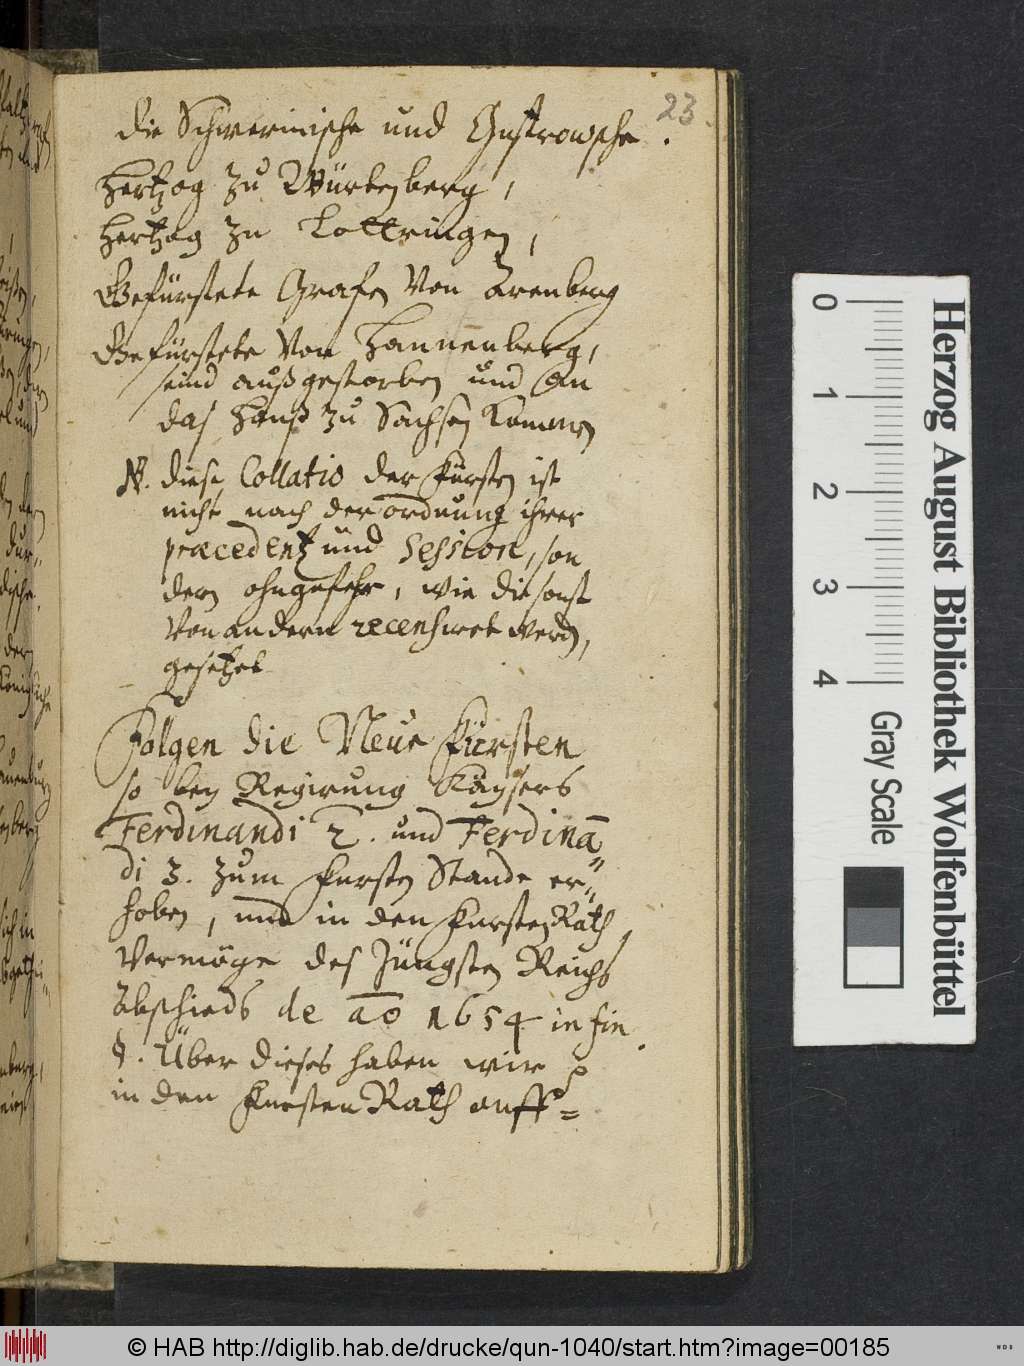 23.
die Schwerinische und Gustrowsche.
Hertzog zu Würtenberg,
Hertzog zu Lottringen,
Gefürstete Grafen Von Arenberg
Gefürstete Von Hannenberg,
seind außgestorben und an
das Hauß zu Sachsen kommen
NB. diese Collatio der Fürsten ist
nicht nach der ordnung ihrer
præcedentz und Session, son
dern ohngefehr, wie die sonst
Von andern recensiret werden,
gesetzet
Folgen die Neue Fürsten
so bey Regirung Kaysers
Ferdinandi 2. und Ferdinā
di 3. zum Fursten Stande er=
hoben, und in den Fursten Rath
Vermöge des Jüngsten Reichs
Abschieds de ao 1654 in fin.
§. Über dieses haben wir
in den Fursten Rath auff=
Herzog August Bibliothek Wolfenbüttel
0 1 2 3 4
Gray Scale
© HAB http://diglib.hab.de/drucke/qun-1040/start.htm?image=00185